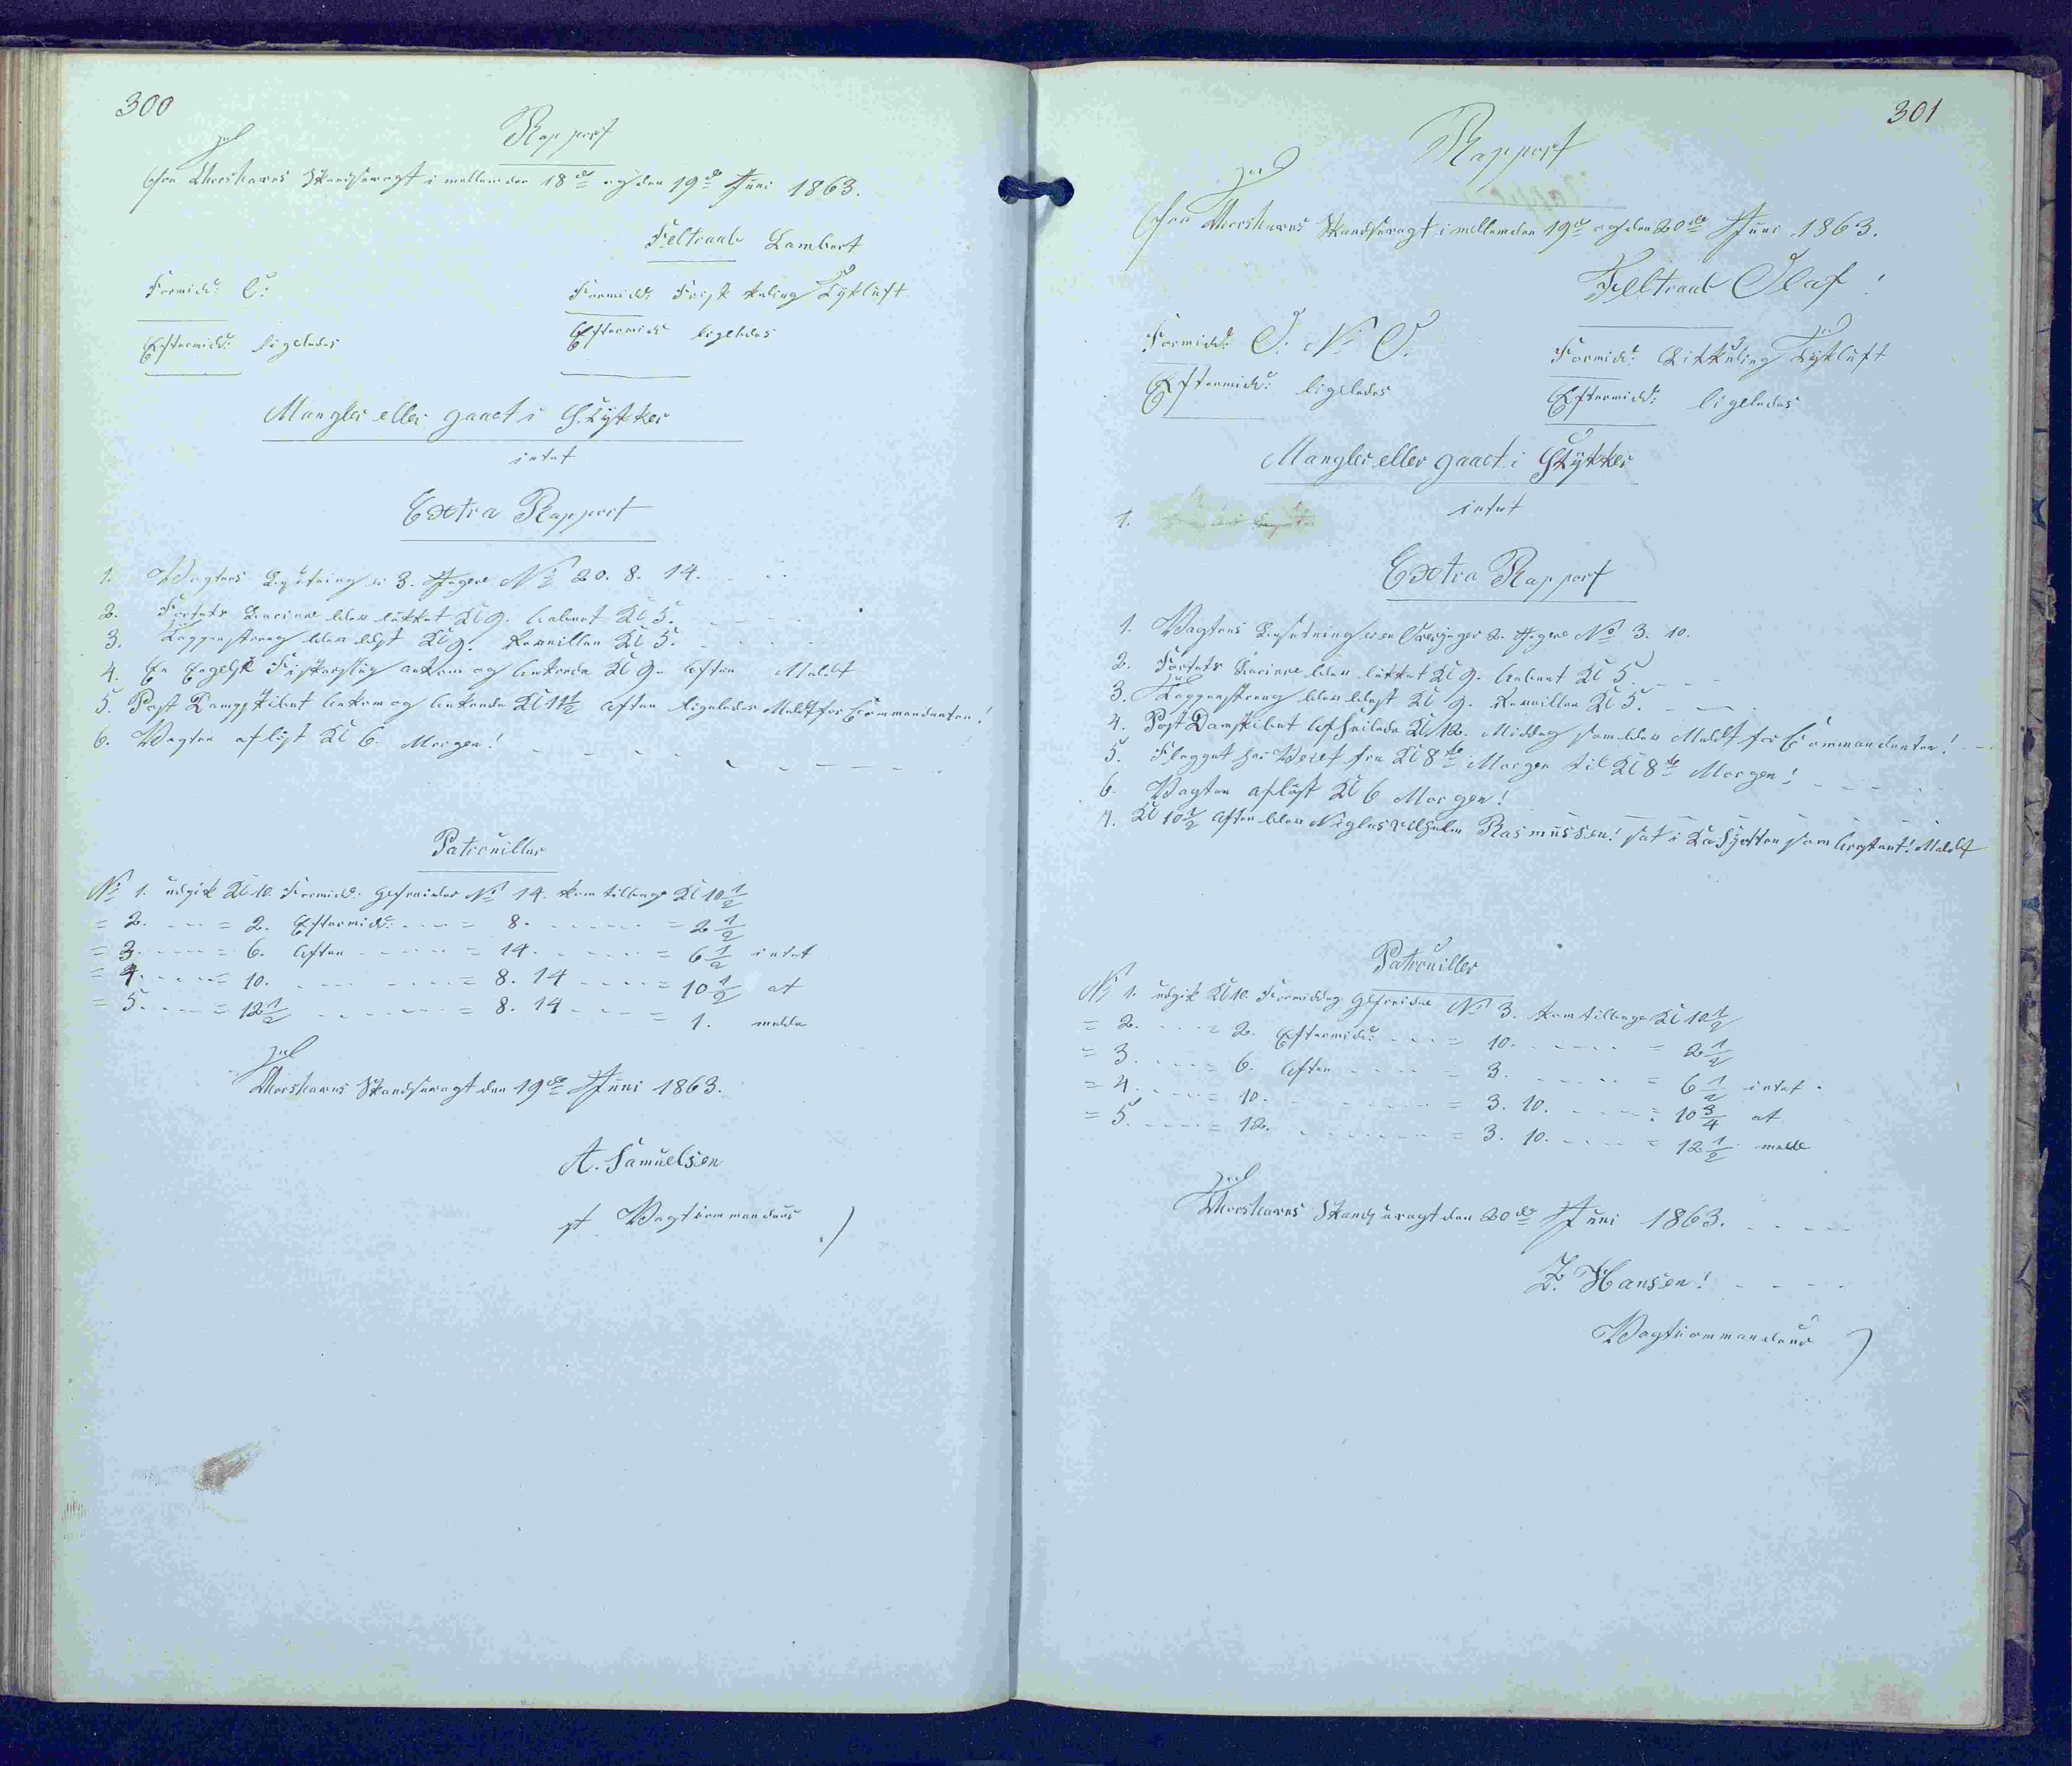 300
Rapport
fra Thorshavns Skandsevagt i mellem den 18de og den 19de Juni 1863.
Feltraab Lambert
Formidd: O:
Formidd: Frisk Kuling Tykluft
Eftermidd: ligeledes
Eftermidd: ligeledes
Mangler eller gaaet i Stykker
intet
Extra Rapport
1. Vagtens Besætning er 3. Jægere No 20. 8. 14.
2. Fortets Barriere blev lukket Kl 9. aabnet Kl 5.
3. Tappenstreg blev blæst Kl 9. Reveillen Kl 5.
4. En Engelsk Fiskerslup ankom og ankrede Kl 9. Aften Meldt
5. Post Dampskibet ankom og ankrede Kl 11½ Aften ligeledes Meldt for Commandanten!
6. Vagten afløst Kl 6. Morgen!
Patrouiller
No 1. udgik Kl 10. Formidd: Gefreider No 14. kom tilbage Kl 10½
= 2. = 2. Eftermidd: = 8. = 2½
= 3. = 6. Aften = 14. = 6½ intet
= 4. = 10. = 8. 14 = 10½ at
= 5. = 12½ = 8. 14 = 1. melde
Thorshavns Skandsevagt den 19de Juni 1863.
A. Samuelsen
pt Vagtcommandeur
301
Rapport
fra Thorshavns Skandsevagt i mellem den 19de og den 20de Juni 1863.
Feltraab Olaf!
Formidd: O. N. O.
Formidd: Lit Kuling Tykluft
Eftermidd: ligeledes
Eftermidd: ligeledes
Mangler eller gaaet i Stykker
intet
1.
Extra Rapport
1. Vagtens Besætning er en Overjæger 2. Jægere No 3. 10.
2. Fortets Barriere blev lukket Kl 9. aabnet Kl 5.
3. Tappenstreg blev blæst Kl 9. Reveillen Kl 5.
4. Post Dampskibet afseilede Kl 12. Middag som blev Meldt for Commandanten!
5. Flagget har Veiet fra Kl 8te Morgen til Kl 8te Morgen!
6. Vagten afløst Kl 6 Morgen!
7. Kl 10½ Aften blev Niglas Vilhelm Rasmussen! sat i Kaschotten som Arrestant! Meldt
Patrouiller
No 1. udgik Kl 10. Formiddag Gefreider No 3. kom tilbage Kl 10½
= 2. = 2. Eftermidd: = 10. = 2½
= 3. = 6. Aften = 3. = 6½ intet
= 4. = 10. = 3. 10. = 10¾ at
= 5. = 12. = 3. 10. = 12½ melde
Thorshavns Skandsevagt den 20de Juni 1863.
Z. Hansen!
Vagtcommandeur